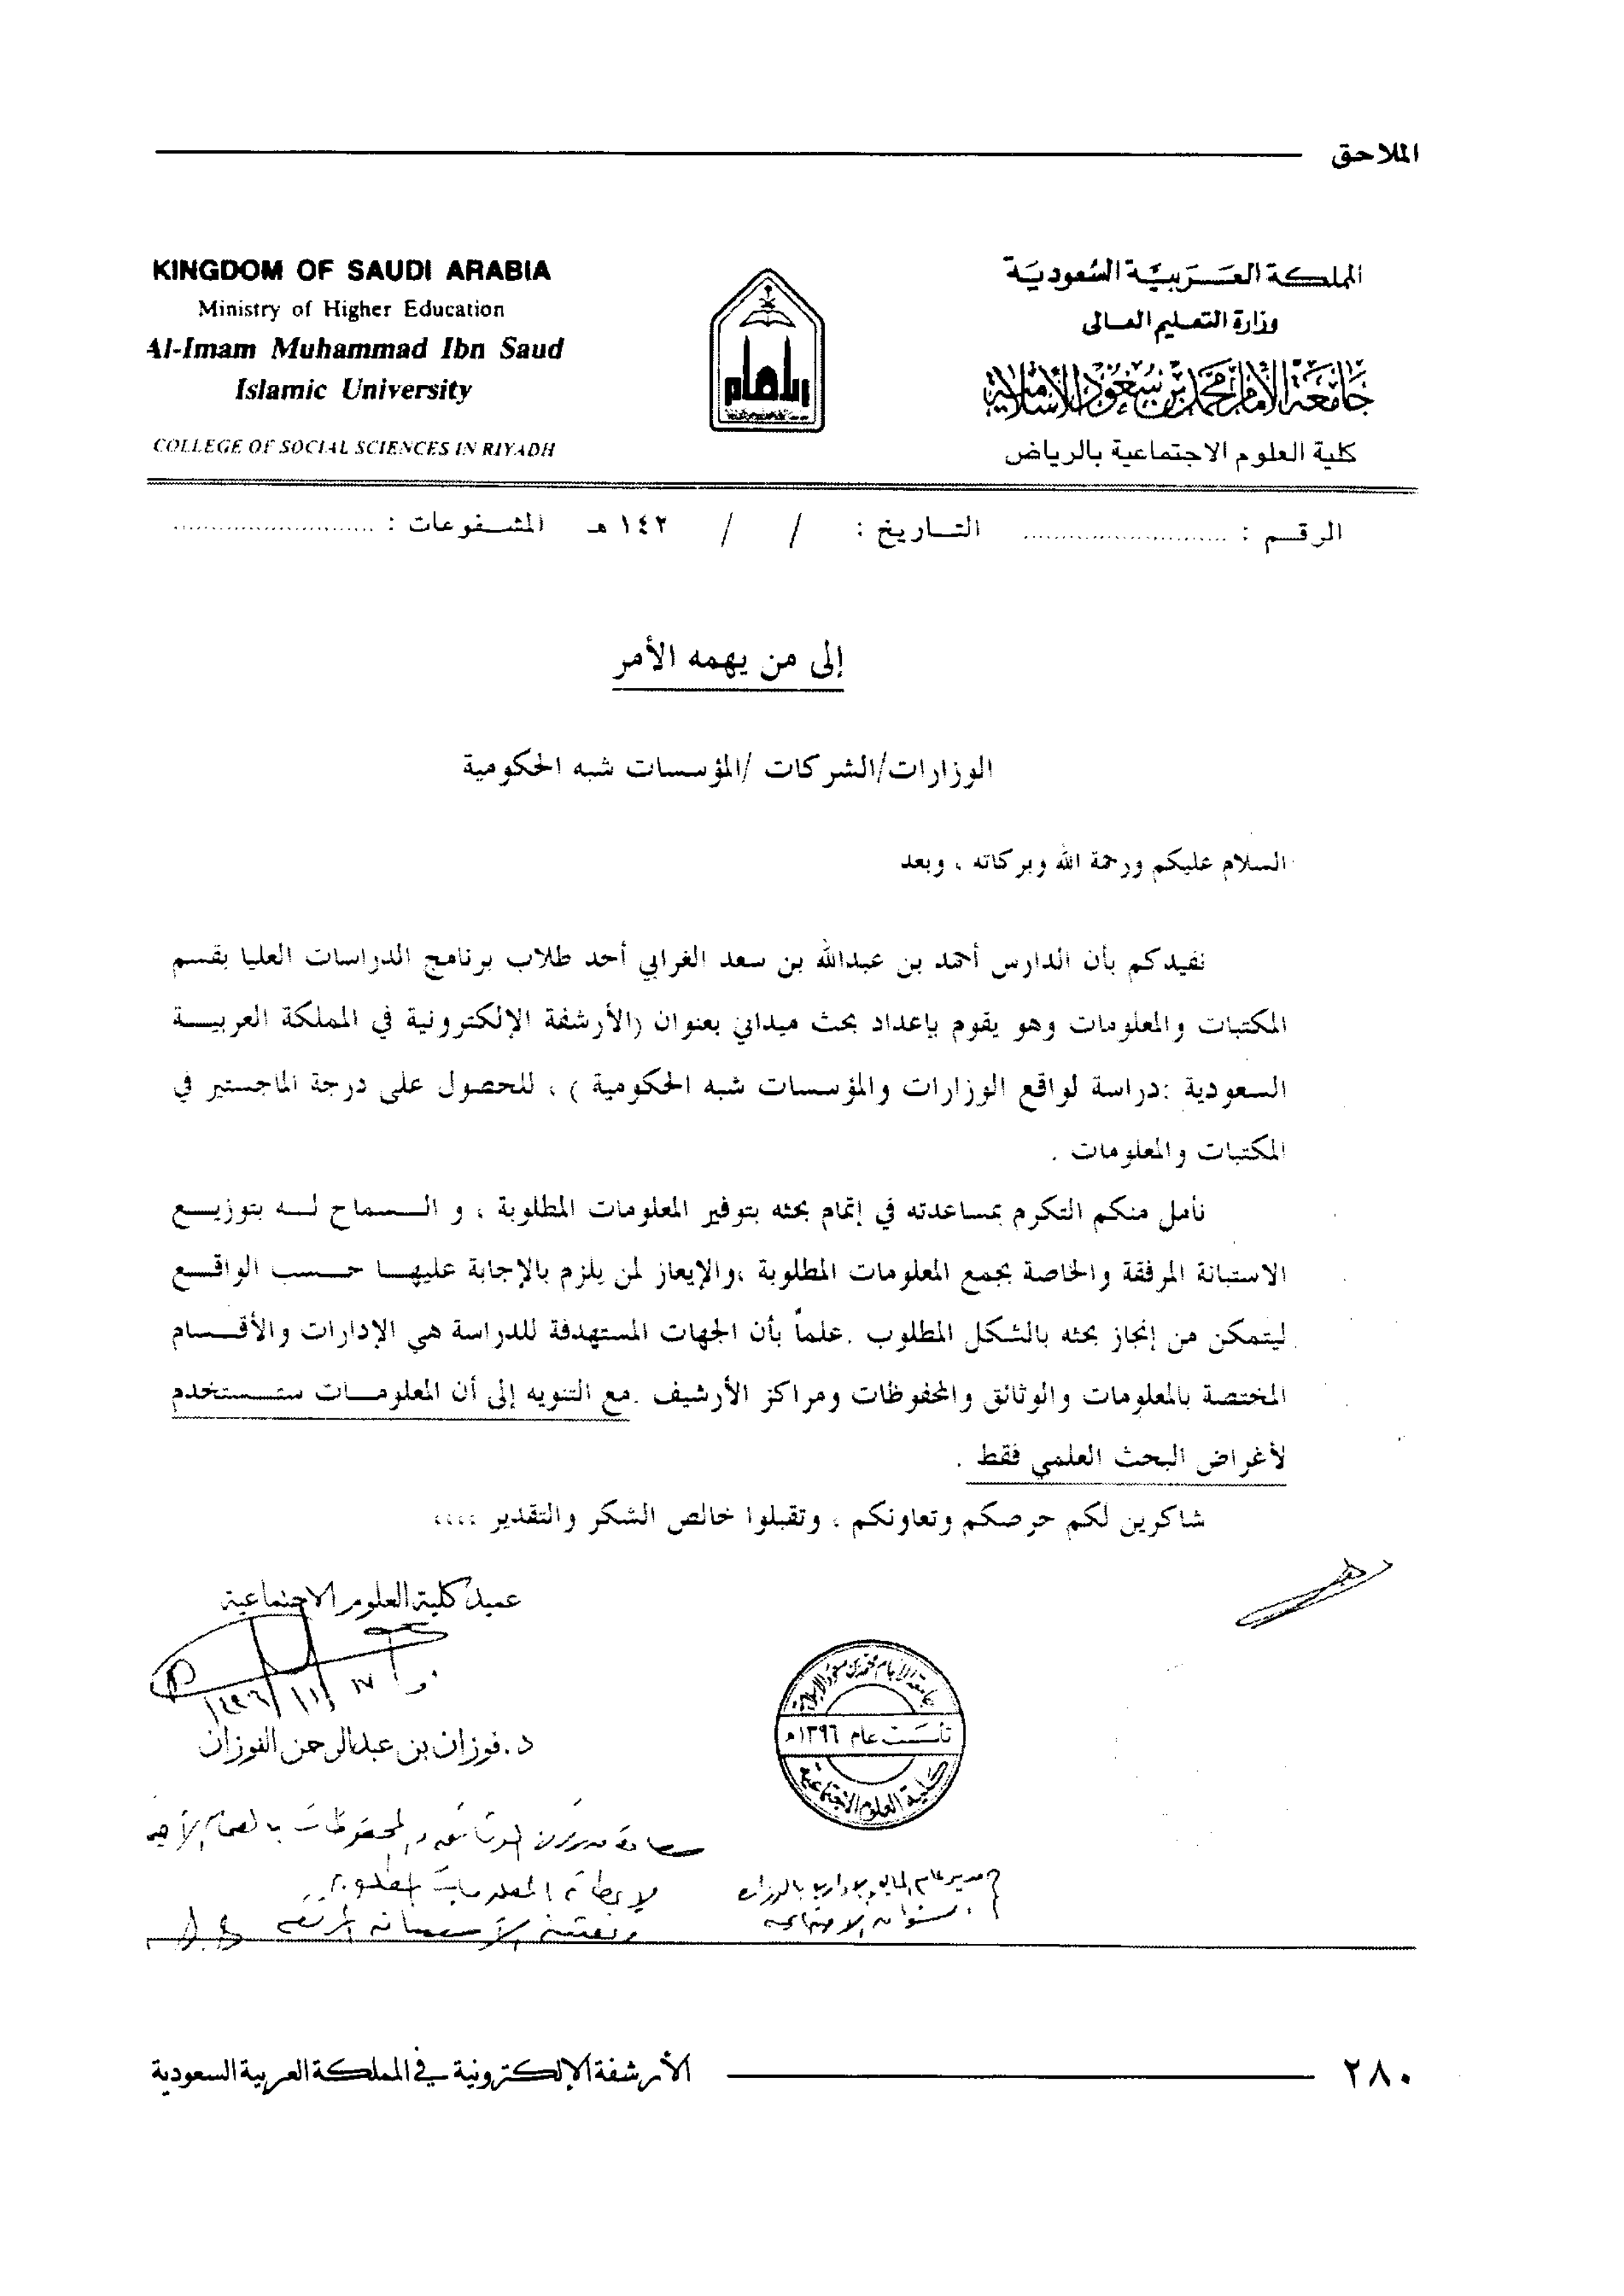 الملاحق
KINGDOM OF SAUDI ARABIA
Ministry of Higher Education
Al-Imam Muhammad Ibn Saud
Islamic University
COLLEGE OF SOCIAL SCIENCES IN RIYADH
المملكة العربية السعودية
وزارة التعليم العالى
جامعة الإمام محمد بن سعود الإسلامية
كلية العلوم الاجتماعية بالرياض
الرقم : .......................... التاريخ : / / ١٤٢ هـ المشفوعات : ..........................
إلى من يهمه الأمر
الوزارات/الشركات /المؤسسات شبه الحكومية
السلام عليكم ورحمة الله وبركاته ، وبعد
نفيدكم بأن الدارس أحمد بن عبدالله بن سعد الغرابي أحد طلاب برنامج الدراسات العليا بقسم
المكتبات والمعلومات وهو يقوم بإعداد بحث ميداني بعنوان (الأرشفة الإلكترونية في المملكة العربيـــة
السعودية :دراسة لواقع الوزارات والمؤسسات شبه الحكومية ) ، للحصول على درجة الماجستير في
المكتبات والمعلومات .
نأمل منكم التكرم بمساعدته في إتمام بحثه بتوفير المعلومات المطلوبة ، و الـــسماح لـــه بتوزيـــع
الاستبانة المرفقة والخاصة بجمع المعلومات المطلوبة ،والإيعاز لمن يلزم بالإجابة عليهـــا حـــسب الواقـــع
ليتمكن من إنجاز بحثه بالشكل المطلوب .علماً بأن الجهات المستهدفة للدراسة هي الإدارات والأقـــسام
المختصة بالمعلومات والوثائق والمحفوظات ومراكز الأرشيف .مع التنويه إلى أن المعلومـــات ستـــستخدم
لأغراض البحث العلمي فقط .
شاكرين لكم حرصكم وتعاونكم ، وتقبلوا خالص الشكر والتقدير ،،،،
عميد كلية العلوم الاجتماعية
د. فوزان بن عبدالرحمن الفوزان
جامعة الإمام محمد بن سعود الإسلامية
تأسست عام ١٣٩٦هـ
كلية العلوم الاجتماعية
٢٨٠
الأرشفة الإلكترونية في المملكة العربية السعودية